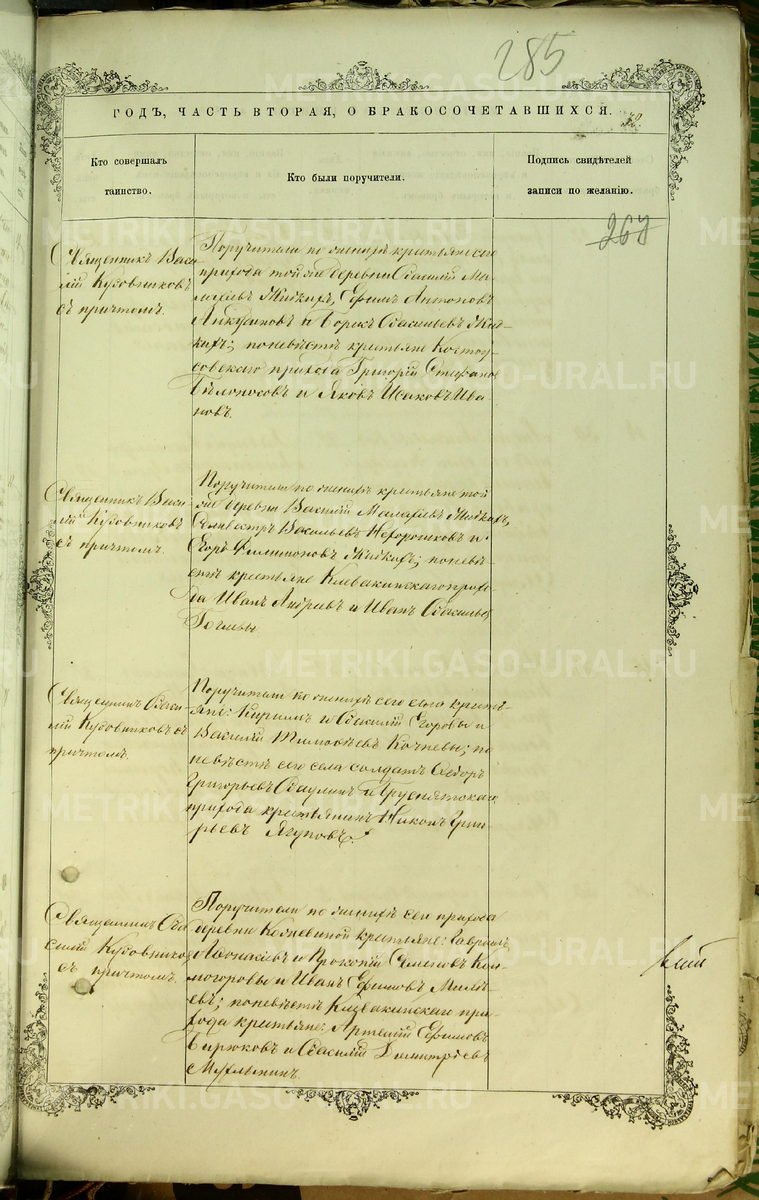 285
ГОДЪ, ЧАСТЬ ВТОРАЯ, О БРАКОСОЧЕТАВШИХСЯ.
Кто совершалъ
таинство.
Кто были поручители.
Подпись свидѣтелей
записи по желанію.
Священникъ Васи
лій Кубовниковъ
съ причтомъ.
Поручители по женихѣ крестьяне сего
прихода той же деревни Василій Ма
лафеевъ Жидкихъ, Ефимъ Антоновъ
и Борисъ Васильевъ Жид-
кихъ; по невѣстѣ крестьяне
прихода Григорій Стефановъ
Бѣлоносовъ и Яковъ Исаковъ Ива
новъ.
Священникъ Васи
лій Кубовниковъ
съ причтомъ.
Поручители по женихѣ крестьяне той
же деревни Василій Малафеевъ Жидкихъ,
Селиверстъ Васильевъ Нехорошковъ и
Егоръ Филимоновъ Жидкихъ; по невѣ-
стѣ крестьяне Клевакинскаго прихо-
да Иванъ Андреевъ и Иванъ Васильевъ
Священникъ Васи-
лій Кубовниковъ съ
причтомъ.
Поручители по женихѣ сего села крестья
яне: Кириллъ и Василій Егоровы и
Василій Тимофеевъ Кочневы; по
невѣстѣ сего села солдатъ Ѳедоръ
Григорьевъ и
прихода крестьянинъ Никонъ Григо
рьевъ Ягуповъ.
Священникъ Ва
силій Кубовниковъ
съ причтомъ.
Поручители по женихѣ сего прихода
деревни крестьяне: Гавріилъ
Аѳонасьевъ и Прокопій Семеновъ Кол
могоровы и Иванъ Ефимовъ
по невѣстѣ Клевакинскаго при
хода крестьяне: Артемій Ефимовъ
Бирюковъ и Василій Димитріевъ
METRIKI.GASO-URAL.RU